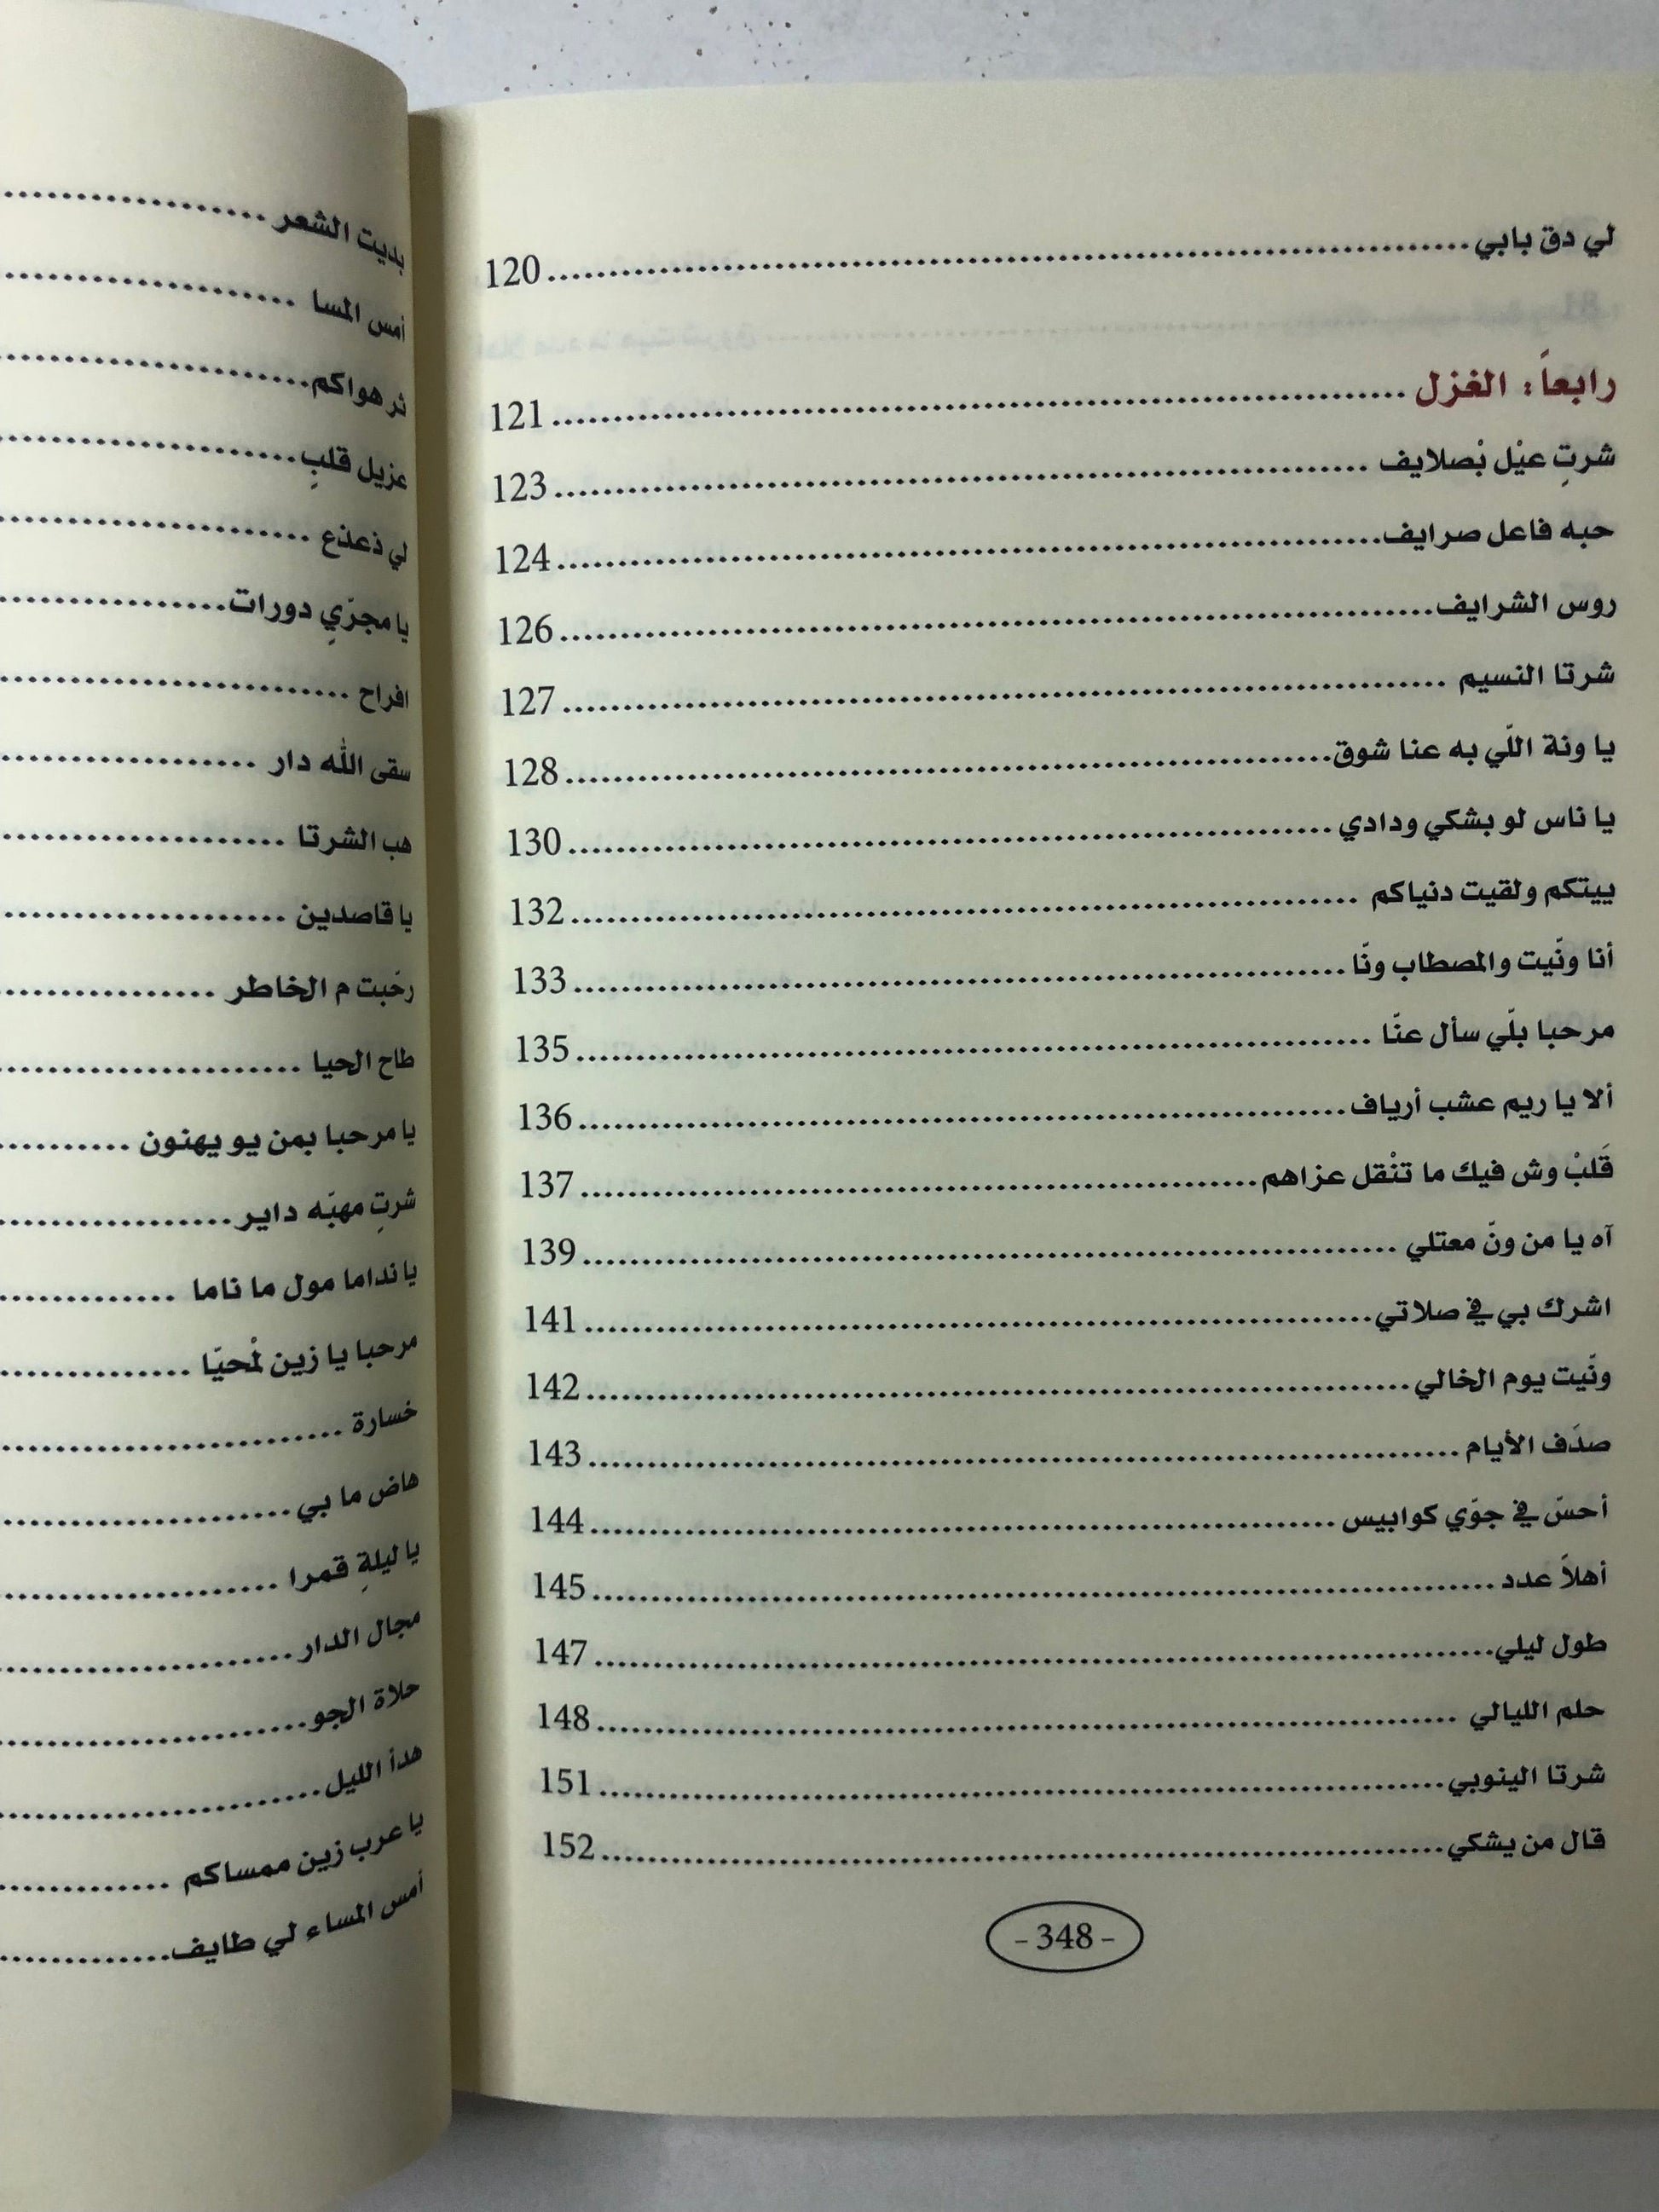 لي دق بابي 120
رابعاً: الغزل 121
شرتِ عيْل بْصلايف 123
حبه فاعل صرايف 124
روس الشرايف 126
شرتا النسيم 127
يا ونة اللّي به عنا شوق 128
يا ناس لو بشكي ودادي 130
ييتكم ولقيت دنياكم 132
أنا ونّيت والمصطاب ونّا 133
مرحبا بلّي سأل عنّا 135
ألا يا ريم عشب أرياف 136
قَلبْ وش فيك ما تنْقل عزاهم 137
آه يا من ونّ معتلي 139
اشرك بي في صلاتي 141
ونّيت يوم الخالي 142
صدَف الأيام 143
أحسّ في جوّي كوابيس 144
أهلاً عدد 145
طول ليلي 147
حلم الليالي 148
شرتا الينوبي 151
قال من يشكي 152
- 348 -
بديت الشعر
أمس المسا
هواكم
عزيل قلبِ
لي ذعذع
يا مجرّيِ دورات
افراح
سقى الله دار
هب الشرتا
يا قاصدين
رحّبت م الخاطر
طاح الحيا
يا مرحبا بمن يو يهنون
شرتِ مهبّه داير
يا نداما مول ما ناما
مرحبا يا زين لمْحيّا
خسارة
هاض ما بي
يا ليلةِ قمرا
مجال الدار
حلاة الجو
هدأ الليل
يا عرب زين ممساكم
أمس المساء لي طايف